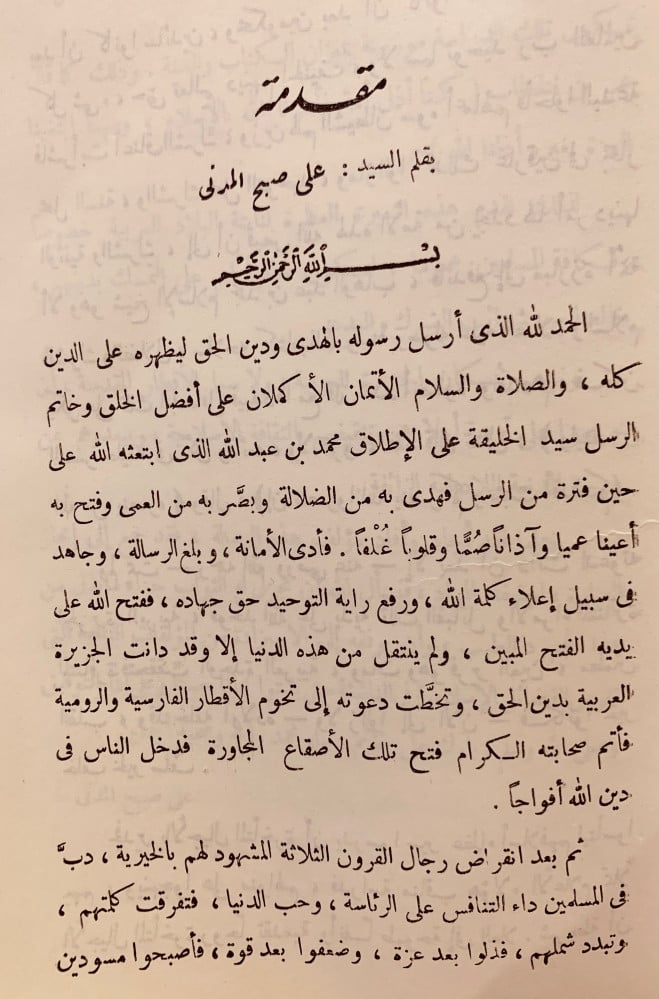 مقدمته
بقلم السيد : على صبح المدنى
بسم الله الرحمن الرحيم
الحمد لله الذى أرسل رسوله بالهدى ودين الحق ليظهره على الدين
كله ، والصلاة والسلام الأتمان الأكملان على أفضل الخلق وخاتم
الرسل سيد الخليقة على الإطلاق محمد بن عبد الله الذى ابتعثه الله على
حين فترة من الرسل فهدى به من الضلالة وبصَّر به من العمى وفتح به
أعينا عميا وآذاناً صُمًّا وقلوباً غُلْفاً . فأدى الأمانة ، وبلغ الرسالة ، وجاهد
فى سبيل إعلاء كلمة الله ، ورفع راية التوحيد حق جهاده ، ففتح الله على
يديه الفتح المبين ، ولم ينتقل من هذه الدنيا إلا وقد دانت الجزيرة
العربية بدين الحق ، وتخطَّت دعوته إلى تخوم الأقطار الفارسية والرومية
فأتم صحابته الكرام فتح تلك الأصقاع المجاورة فدخل الناس فى
دين الله أفواجاً .
ثم بعد انقراض رجال القرون الثلاثة المشهود لهم بالخيرية ، دبَّ
فى المسلمين داء التنافس على الرئاسة ، وحب الدنيا ، فتفرقت كلمتهم ،
وتبدد شملهم ، فذلوا بعد عزة ، وضعفوا بعد قوة ، فأصبحوا مسودين